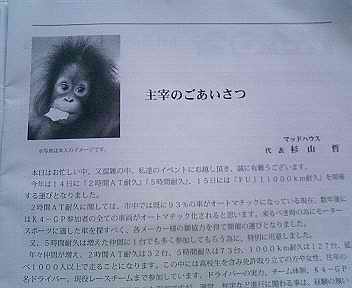 主宰のごあいさつ
※写真は本人のイメージです。
マッドハウス
代表 杉山 哲
本日はお忙しい中、又混雑の中、私達のイベントにお越し頂き、誠に有難うございます。
今年は14日に「2時間AT耐久」「5時間耐久」、15日には「FUJI1000km耐久」を開催
する運びとなりました。
2時間AT耐久では、市中では既に93%の車がオートマチックになっている現在、数年後に
はK4-GP参加者の全ての車両がオートマチック化されると思います。来るべき時の為にモーター
スポーツに適した車を探すべく、各メーカー様の御協力を得て開催の運びとなりました。
又、5時間耐久は増えた仲間に1台でも多く参加してもらう為に、特別に用意しました。
年々仲間が増え、2時間AT耐久は32台、5時間耐久は73台、1000km耐久は127台、延
べ1000人以上で走ることになります。この中には高校生を含み免許取り立ての方や女性、往年の
名ドライバー、現役レースチームまで参加しています。ドライバーの実力、チーム体制、K4-GP